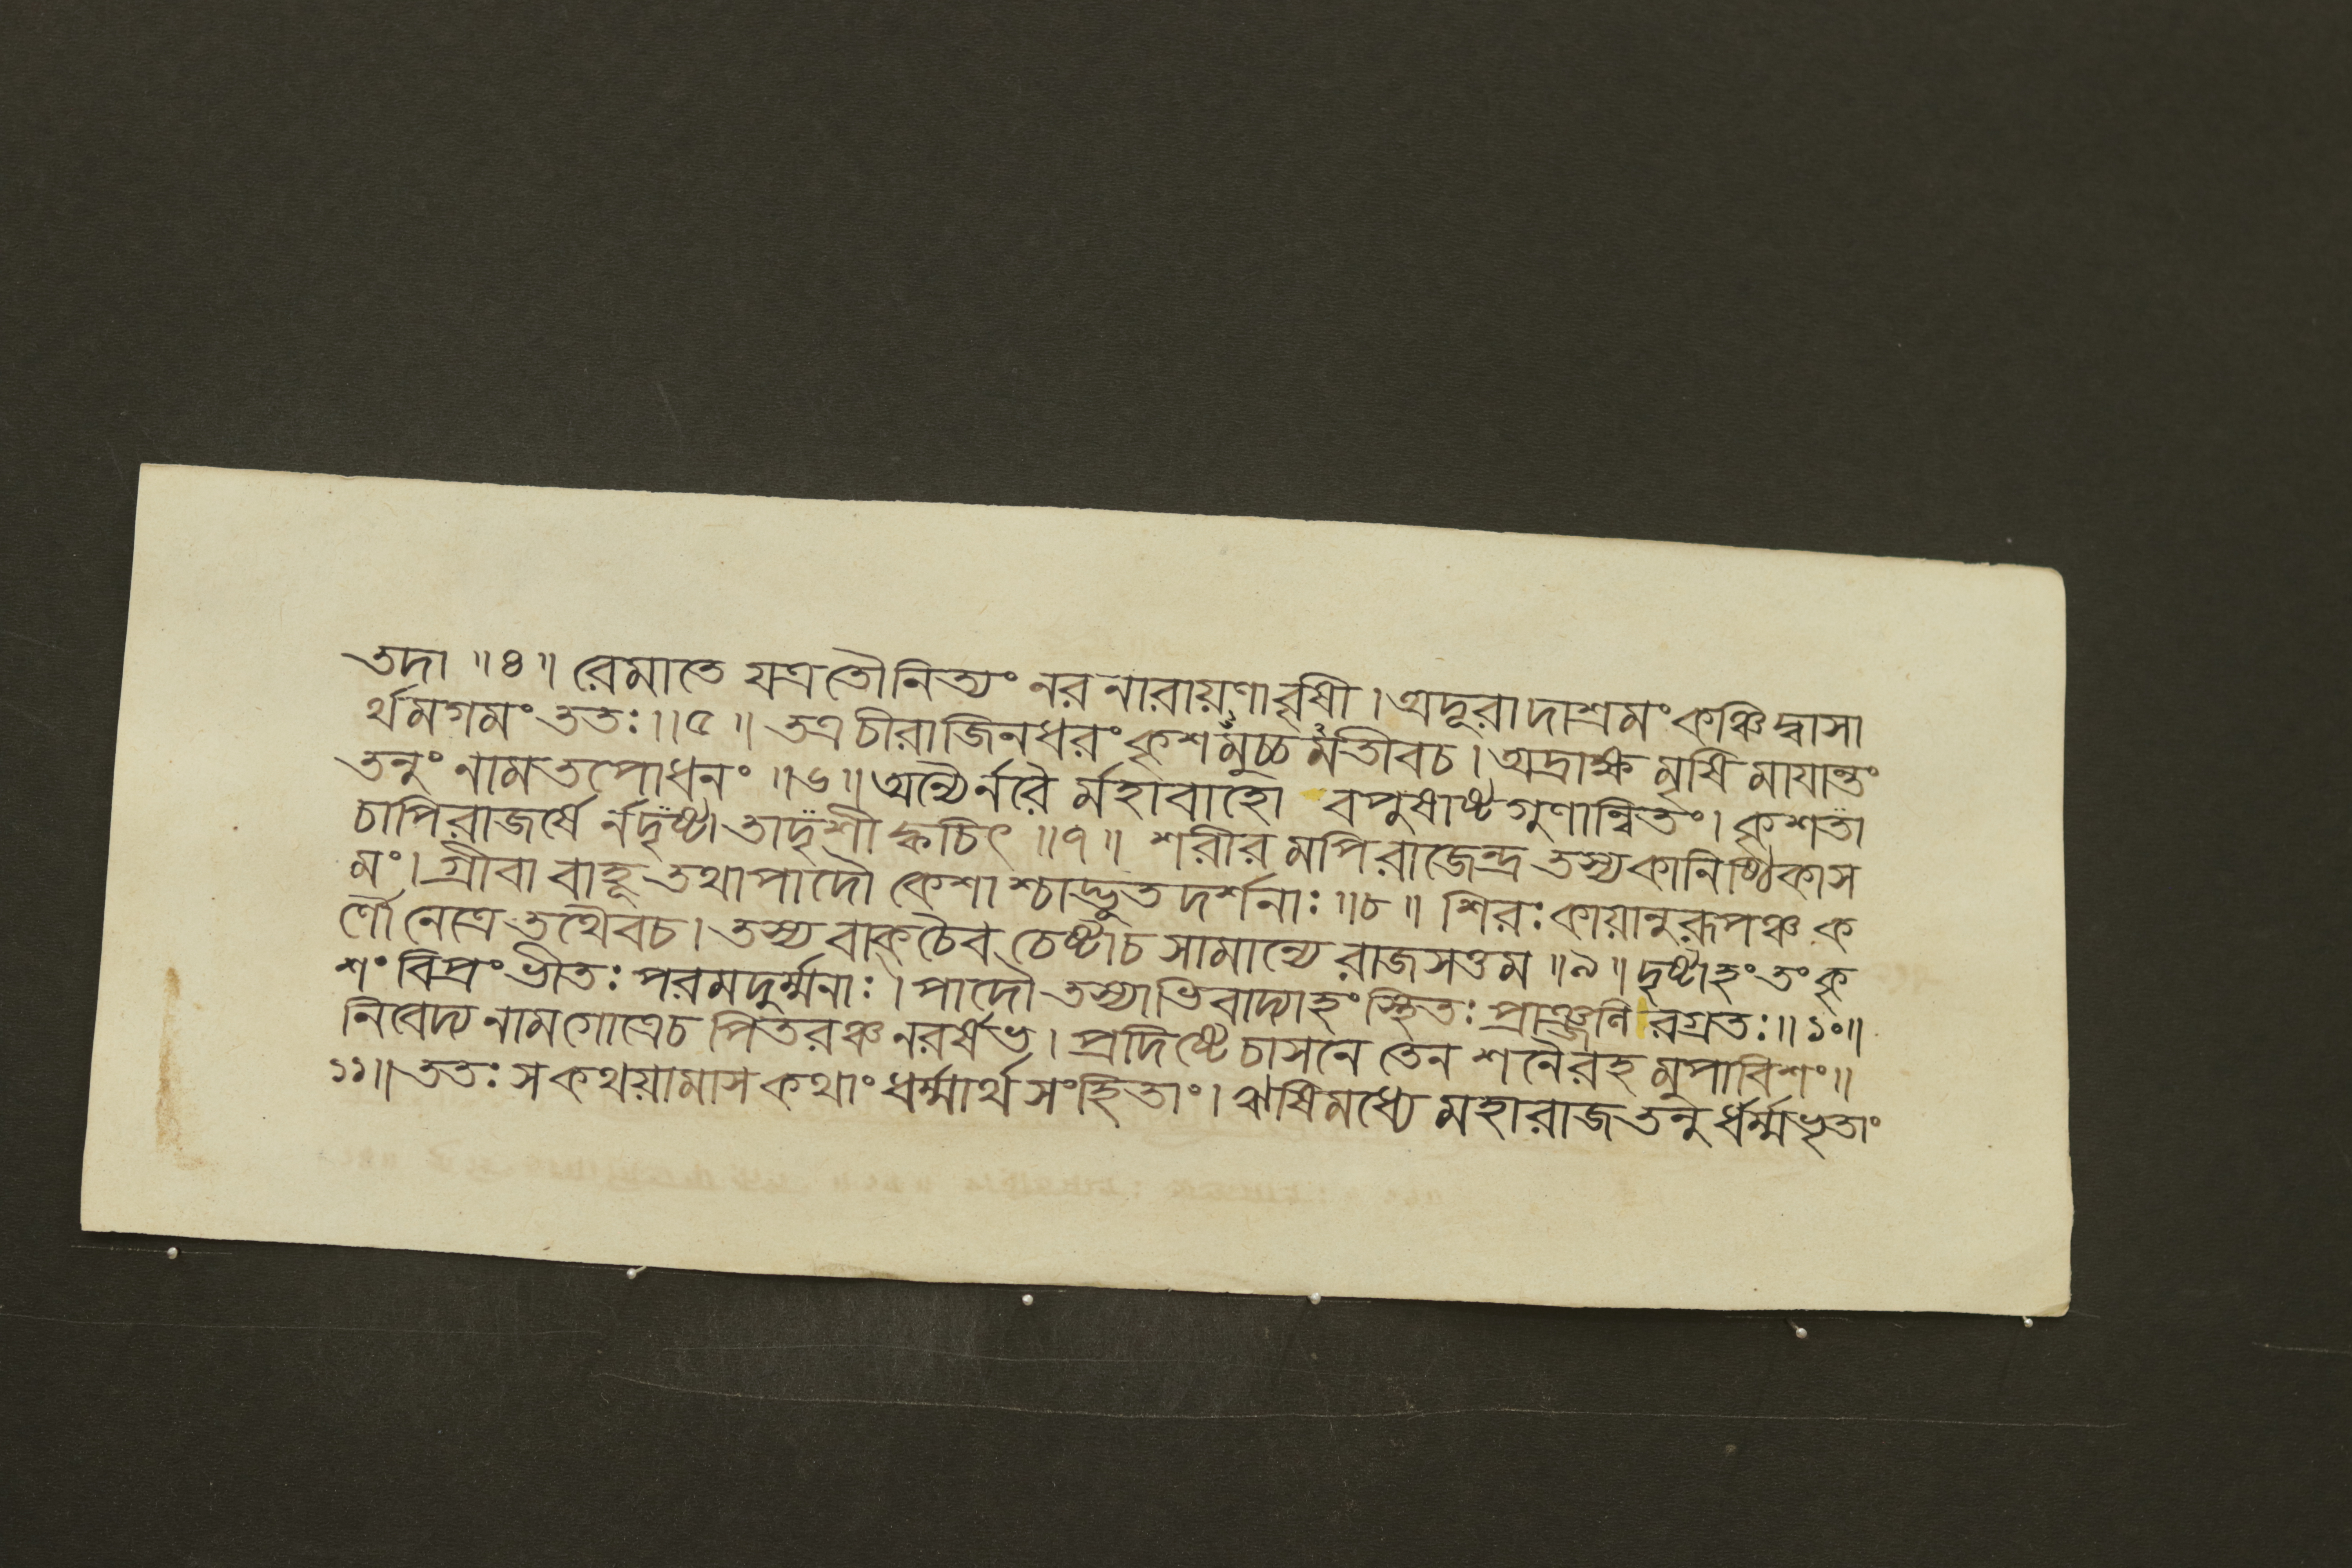 তদা ॥ ৪ ॥ রেমাতে যত্রতৌনিত্যং নরনারায়ণাবৃষী । অদূরাদাশ্রমং কঞ্চিদ্বাসা
র্থমগমং ততঃ ॥ ৫ ॥ তত্রচীরাজিনধরং কৃশমুচ্চমতীবচ । অদ্রাক্ষমৃষিমাযান্তং
তনুং নামতপোধনং ॥ ৬ ॥ অন্যৈর্নরৈর্মহাবাহো বপুষাষ্টগুণান্বিতং । কৃশতা
চাপিরাজর্ষে র্নদৃষ্টা তাদৃশী ক্বচিৎ ॥ ৭ ॥ শরীরমপিরাজেন্দ্র তস্যকানিষ্ঠিকাস
মং । গ্রীবা বাহূ তথাপাদৌ কেশাশ্চাদ্ভুতদর্শনাঃ ॥ ৮ ॥ শিরঃকায়ানুরূপঞ্চ ক
র্ণৌনেত্রে তথৈবচ । তস্যবাক্‌চৈব চেষ্টাচ সামান্যে রাজসত্তম ॥ ৯ ॥ দৃষ্ট্বাহং তং কৃ
শং বিপ্রং ভীতঃ পরমদুর্ম্মনাঃ । পাদৌ তস্যাভিবাদ্যাহং স্থিতঃ প্রাঞ্জলিরগ্রতঃ ॥ ১০ ॥
নিবেদ্য নামগোত্রেচ পিতরঞ্চ নরর্ষভ । প্রদিষ্টেচাসনে তেন শনৈরহমুপাবিশং ॥
১১ ॥ ততঃ সকথয়ামাস কথাং ধর্ম্মার্থসংহিতাং । ঋষিমধ্যে মহারাজ তনুর্ধর্ম্মভৃতাং